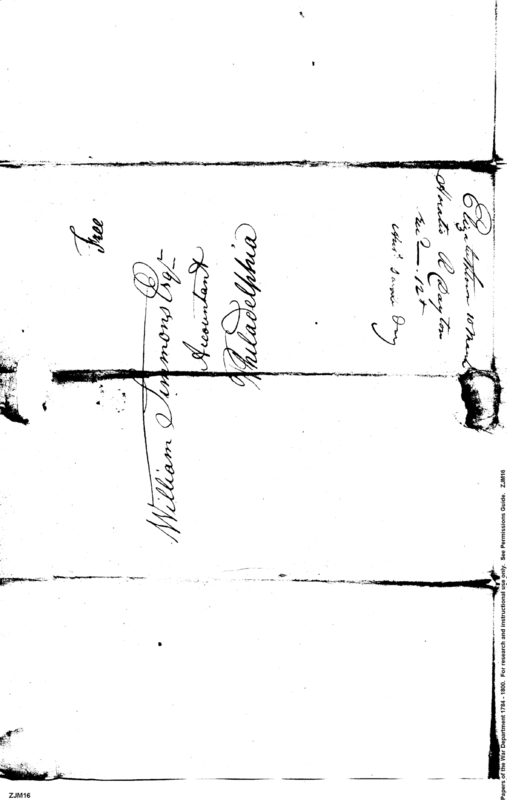 Free
William Simmons Esqr
Accountant
Philadelphia
Elizabethtown 10 March
A Dayton
recd 12th
same Day
Papers of the War Department 1784 - 1800. For research and instructional use only. See Permissions Guide. ZJM16
ZJM16